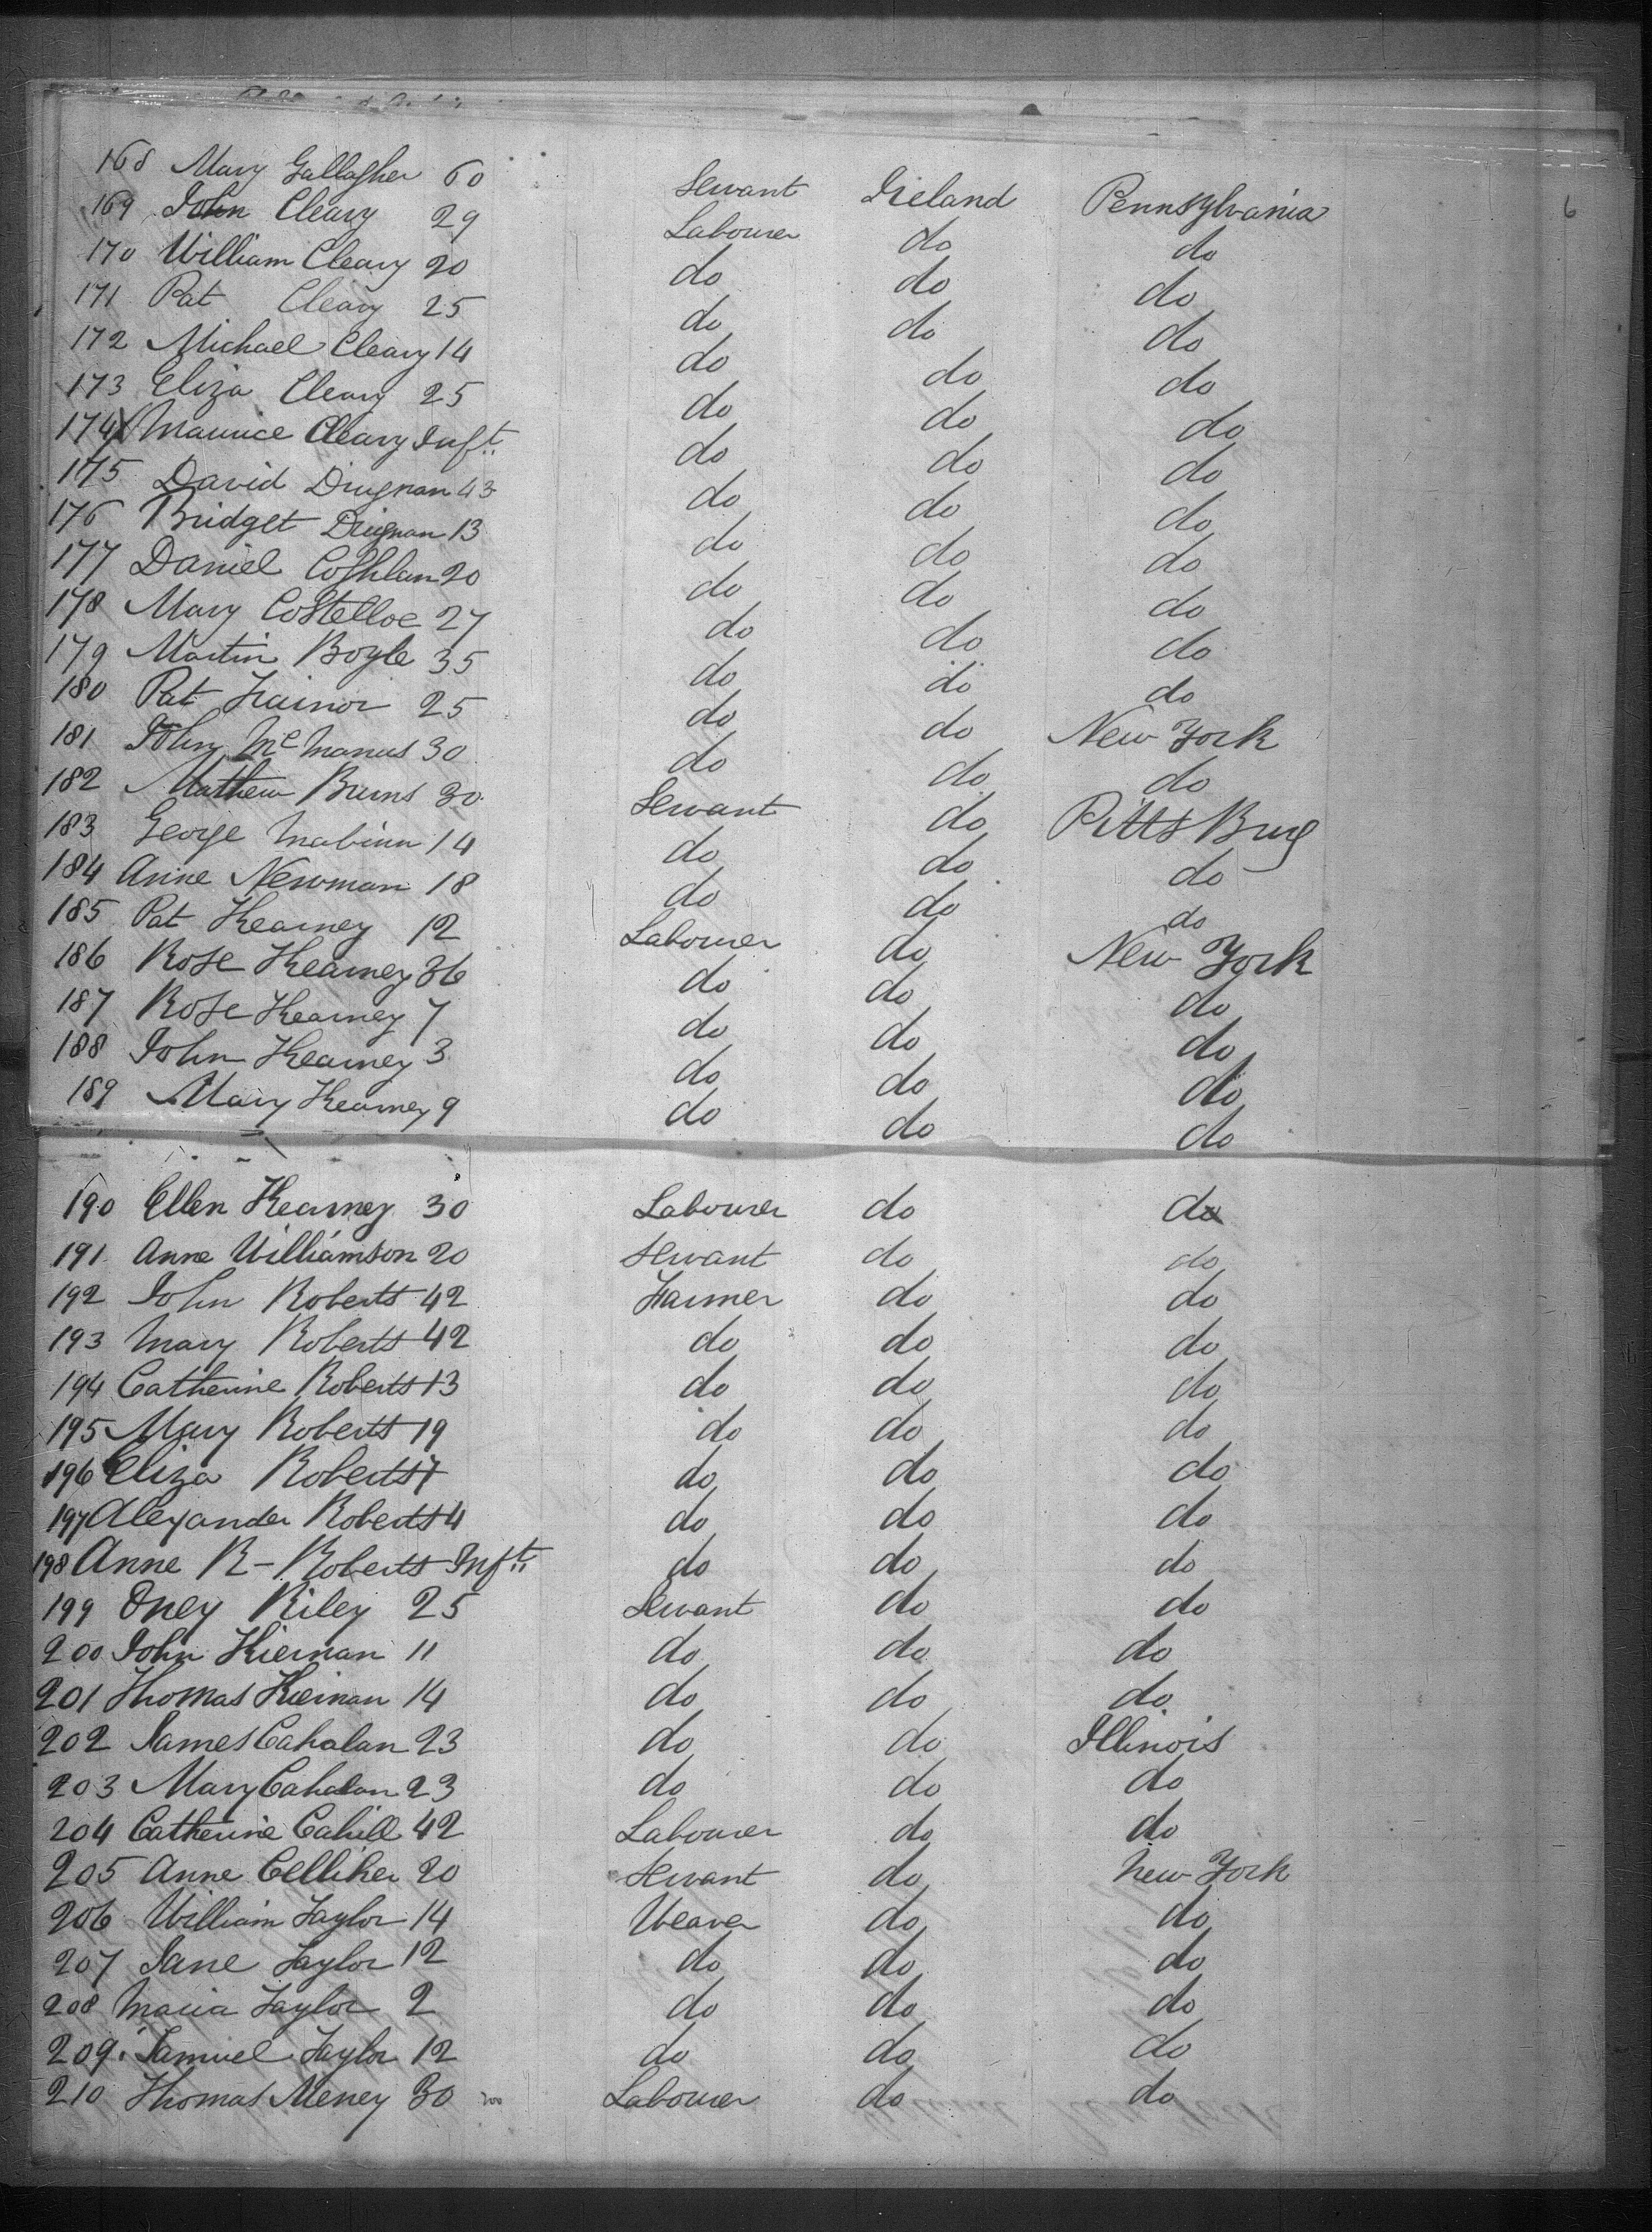 168 Mary Gallagher 60 Servant Ireland Pennsylvania
169 John Cleary 29 Labourer do do
170 William Cleary 20 do do do
171 Pat Cleary 25 do do do
172 Michael Cleary 14 do do do
173 Eliza Cleary 25 do do do
174 Maurice Cleary Inft do do do
175 David Diugnan 43 do do do
176 Bridget Diugnan 13 do do do
177 Daniel Coghlan 20 do do do
178 Mary Costelloe 27 do do do
179 Martin Boyle 35 do do do
180 Pat Trainor 25 do do New York
181 John McManus 30 do do do
182 Mathew Burns 30 Servant do Pitts Burg
183 George 14 do do do
184 Anne Newman 18 do do do
185 Pat Kearney 12 Labourer do New York
186 Rose Kearney 36 do do do
187 Rose Kearney 7 do do do
188 John Kearney 3 do do do
189 Mary Kearney 9 do do do
190 Ellen Kearney 30 Labourer do do
191 Anne Williamson 20 Servant do do
192 John Roberts 42 Farmer do do
193 Mary Roberts 42 do do do
194 Catherine Roberts 13 do do do
195 Mary Roberts 19 do do do
196 Eliza Roberts 7 do do do
197 Alexander Roberts 4 do do do
198 Anne R- Roberts Inft do do do
199 Oney Riley 25 Servant do do
200 John Kiernan 11 do do do
201 Thomas Kiernan 14 do do do
202 James Cahalan 23 do do Illinois
203 Mary Cahalan 23 do do do
204 Catherine Cahill 42 Labourer do do
205 Anne Celliher 20 Servant do New York
206 William Taylor 14 Weaver do do
207 Jane Taylor 12 do do do
208 Maria Taylor 2 do do do
209 Samuel Taylor 12 do do do
210 Thomas Meney 30 Labourer do do